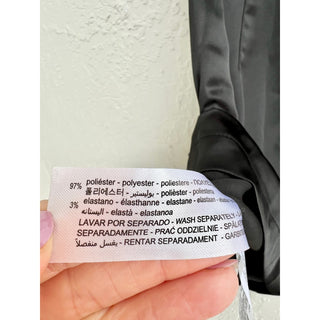 97% poliéster - polyester - poliestere -
폴리에스터 - بوليستير - polièster - poliesterra
3% elastano - élasthanne - elastane - elastan -
الياستانه - elastà - elastanoa
LAVAR POR SEPARADO - WASH SEPARATELY -
SEPARADAMENTE - PRAĆ ODDZIELNIE - SEPARATELY
يغسل منفصلاً - RENTAR SEPARADAMENT -